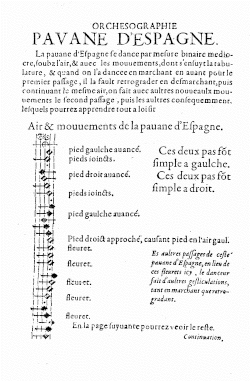 ORCHESOGRAPHIE
PAVANE D'ESPAGNE.
La pauane d'Espagne se dance par mesure binaire medio-
cre, soubz l'air, & auec les mouuements, dont s'ensuyt la tabu-
lature, & quand on l'a dancee en marchant en auant pour le
premier passage, il la fault retrograder en desmarchant, puis
continuant le mesme air, on fait auec aultres nouueaulx mou-
uements le second passage, puis les aultres consequemment.
lesquels pourrez apprendre tout a loisir
Air & mouuements de la pauane d'Espagne.
pied gaulche auancé.
pieds ioincts.
pied droit auancé.
pieds ioincts.
pied gaulche auancé.
Ces deux pas fõt
simple a gaulche.
Ces deux pas font
simple a droit.
Pied droict approché, causant pied en l'air gaul.
fleuret.
fleuret.
fleuret.
fleuret.
fleuret.
Es aultres passages de ceste
pauane d'Espagne, en lieu de
ces fleurets icy, le danceur
fait d'aultres gesticulations,
tant en marchant que retro-
gradant.
En la page suyuante pourrez veoir le reste.
Continuation,